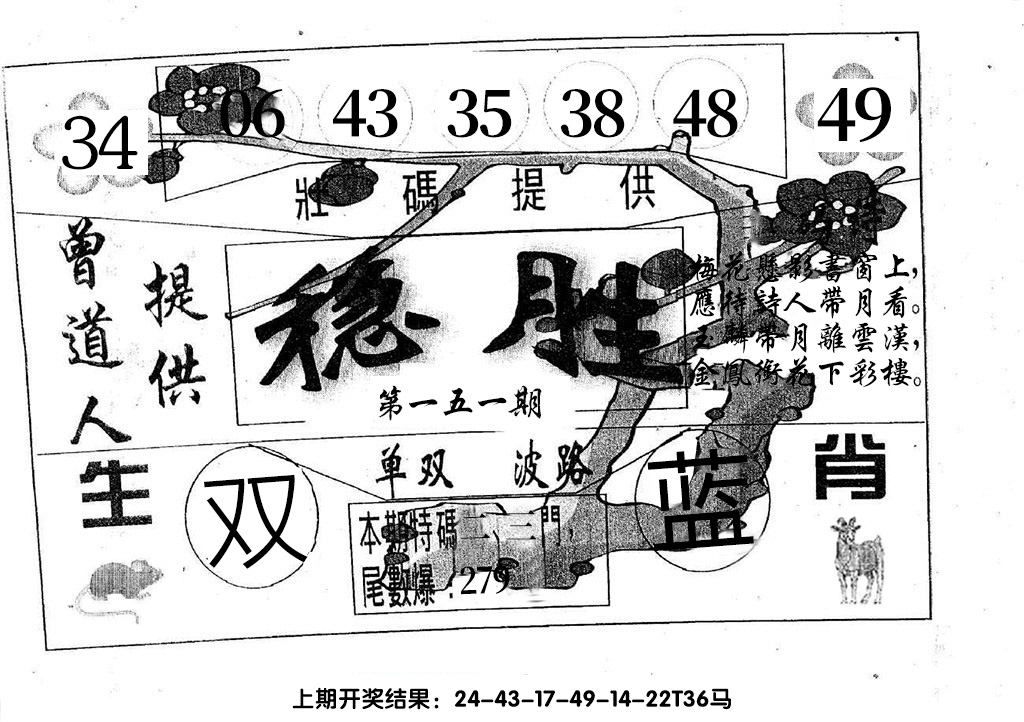 34 06 43 35 38 48 49
壯碼提供
曾道人
提供
稳胜
第一五一期
梅花懸影書窗上，
應待詩人帶月看。
玉麟帶月離雲漢，
金鳳銜花下彩樓。
单双 波路
生肖
双
蓝
本期特碼二、三門，
尾數爆：279
上期开奖结果：24-43-17-49-14-22T36马